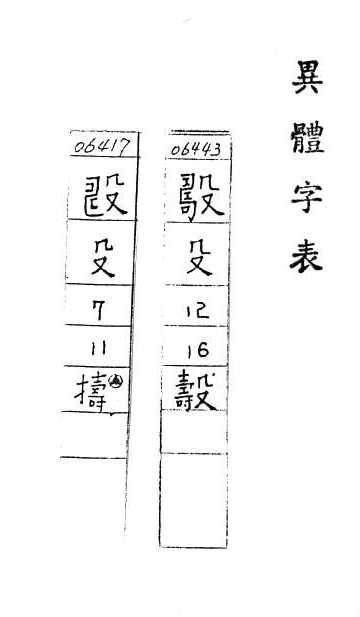 異體字表
06443
殳
12
16
06417
殳
7
11
擣